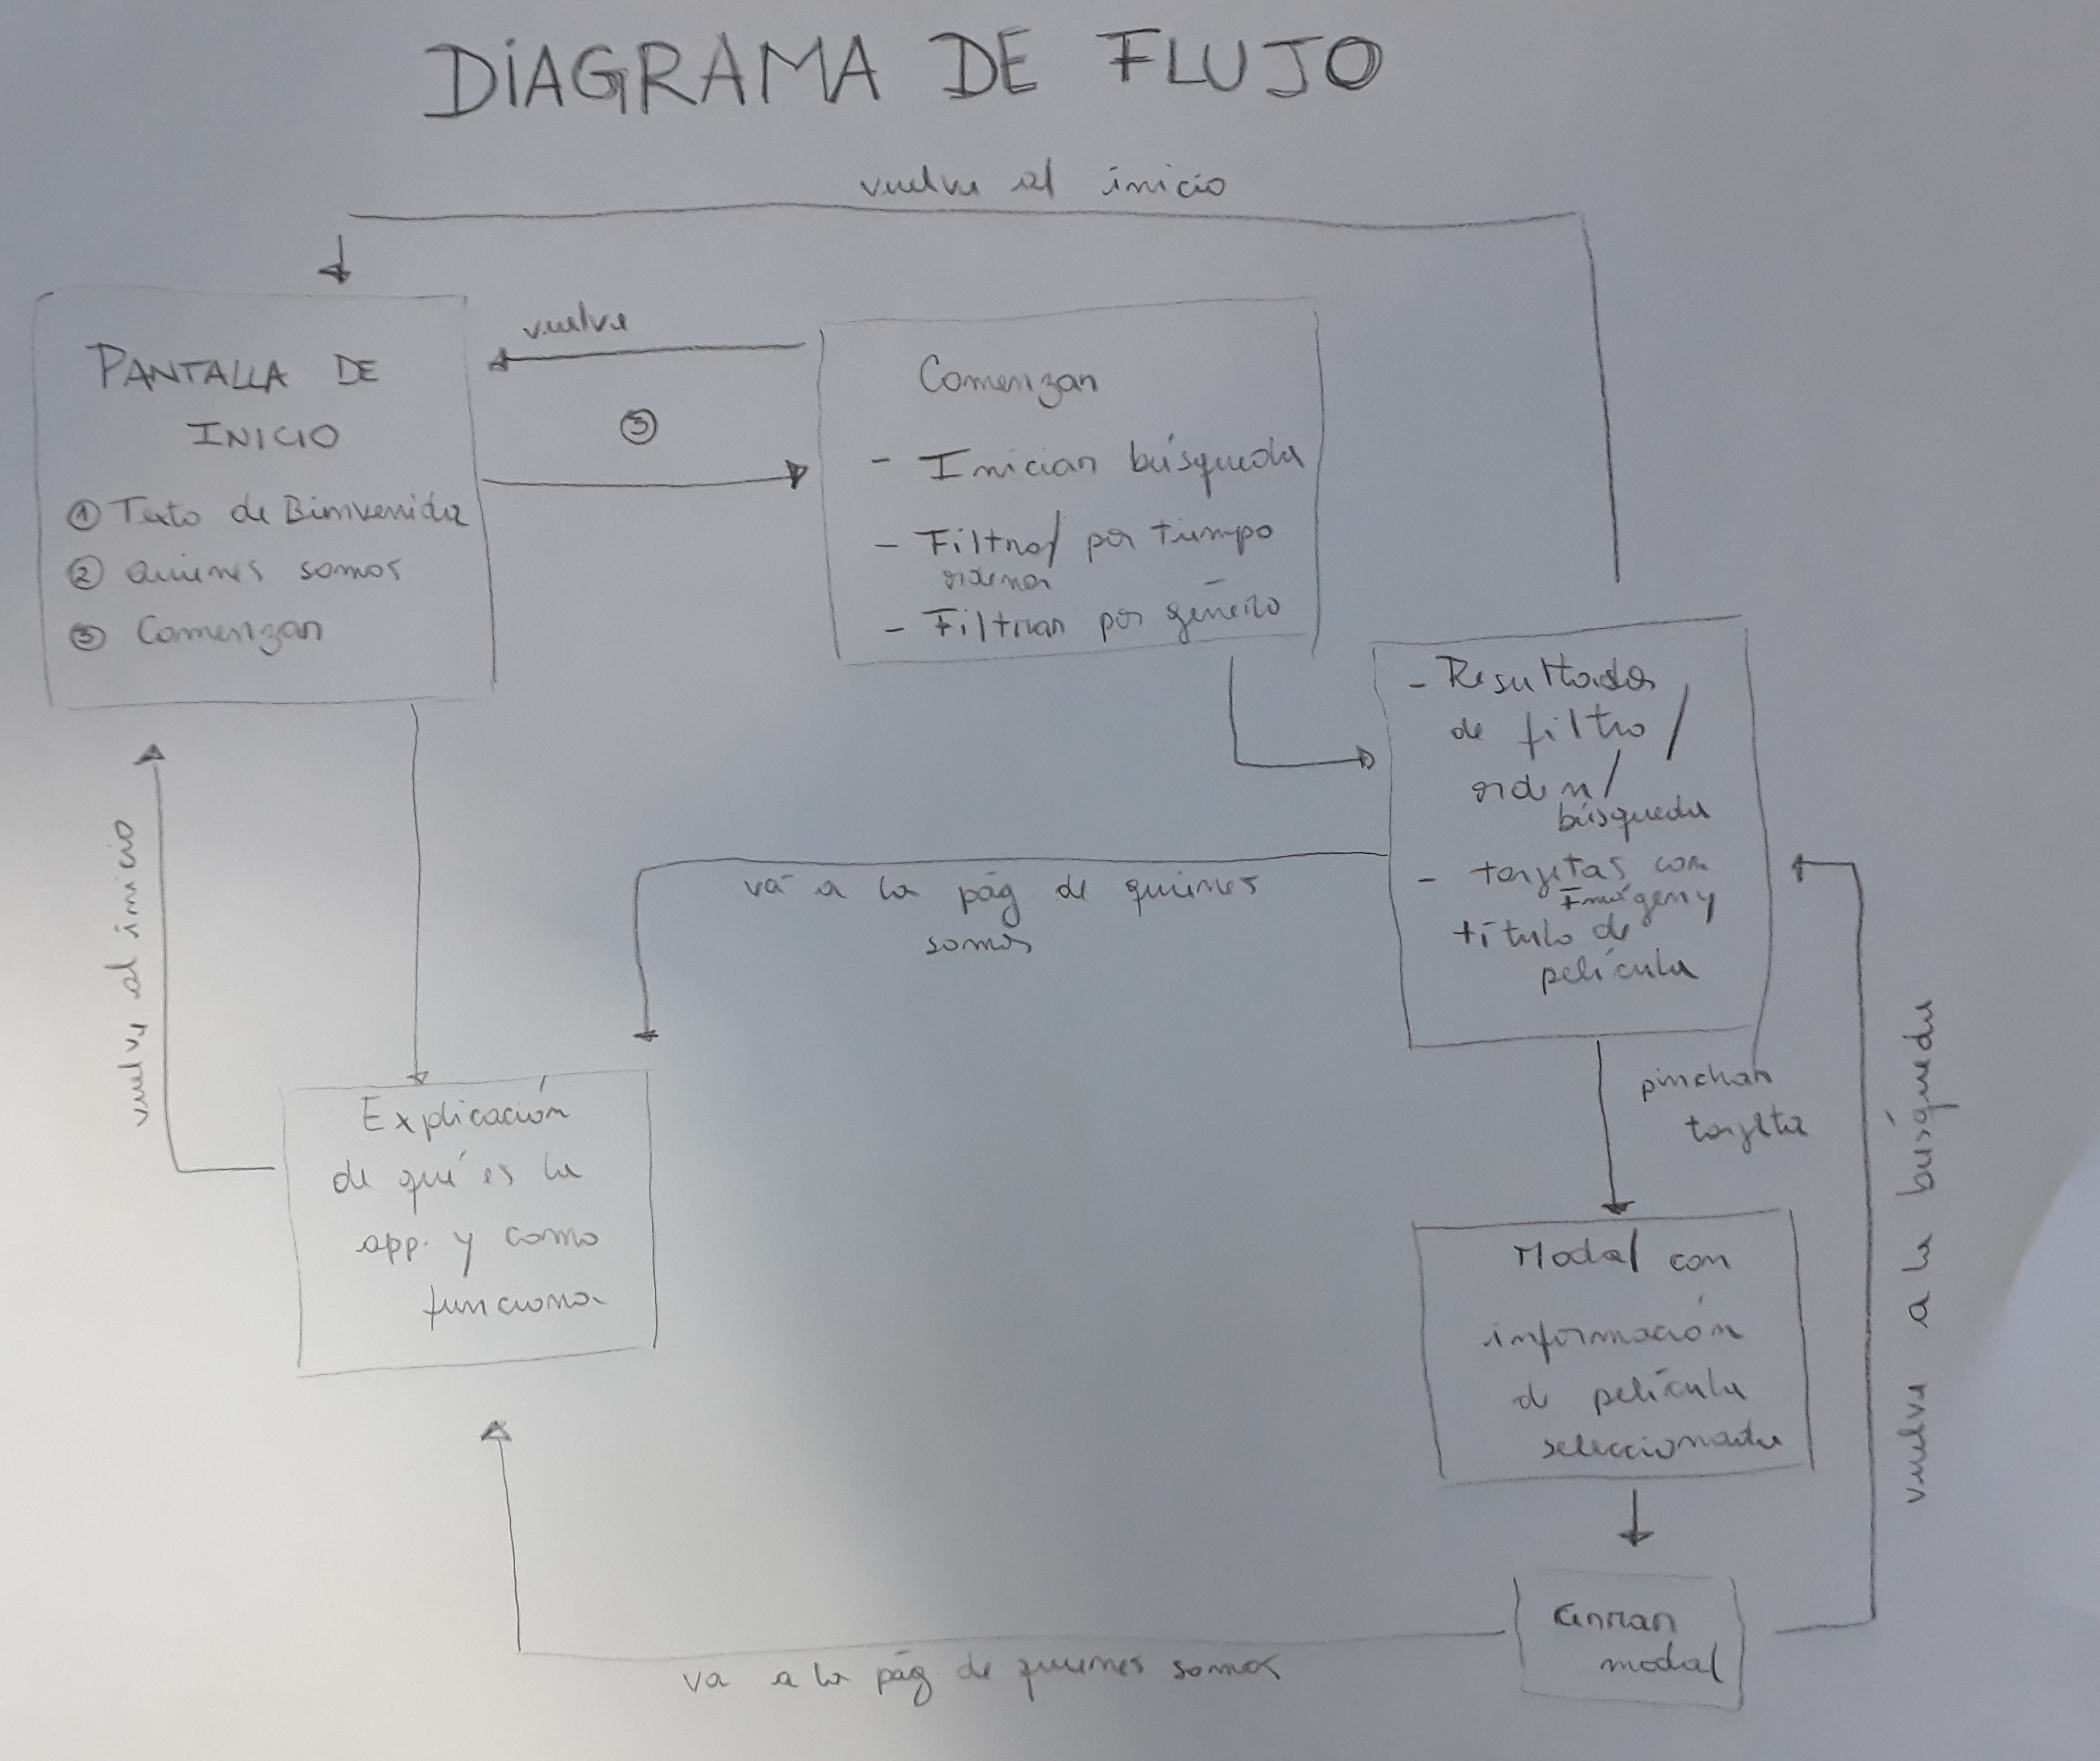 DiAGRAMA DE FLUJO
vuelve al inicio
PANTALLA DE
INICIO
① Texto de Bienvenida
② Quienes somos
③ Comenzar
vuelve
③
Comenzar
- Iniciar búsqueda
- Filtrar/ por tiempo
ordenar
- Filtrar por género
- Resultados
de filtro/
orden/
búsqueda
- tarjetas con
Imágen y
título de
película
va a la pág de quienes
somos
vuelve al inicio
Explicación
de qué es la
app. y como
funciona
pinchar
tarjeta
Modal con
información
de película
seleccionada
vuelve a la búsqueda
Cerrar
modal
va a la pág de quienes somos